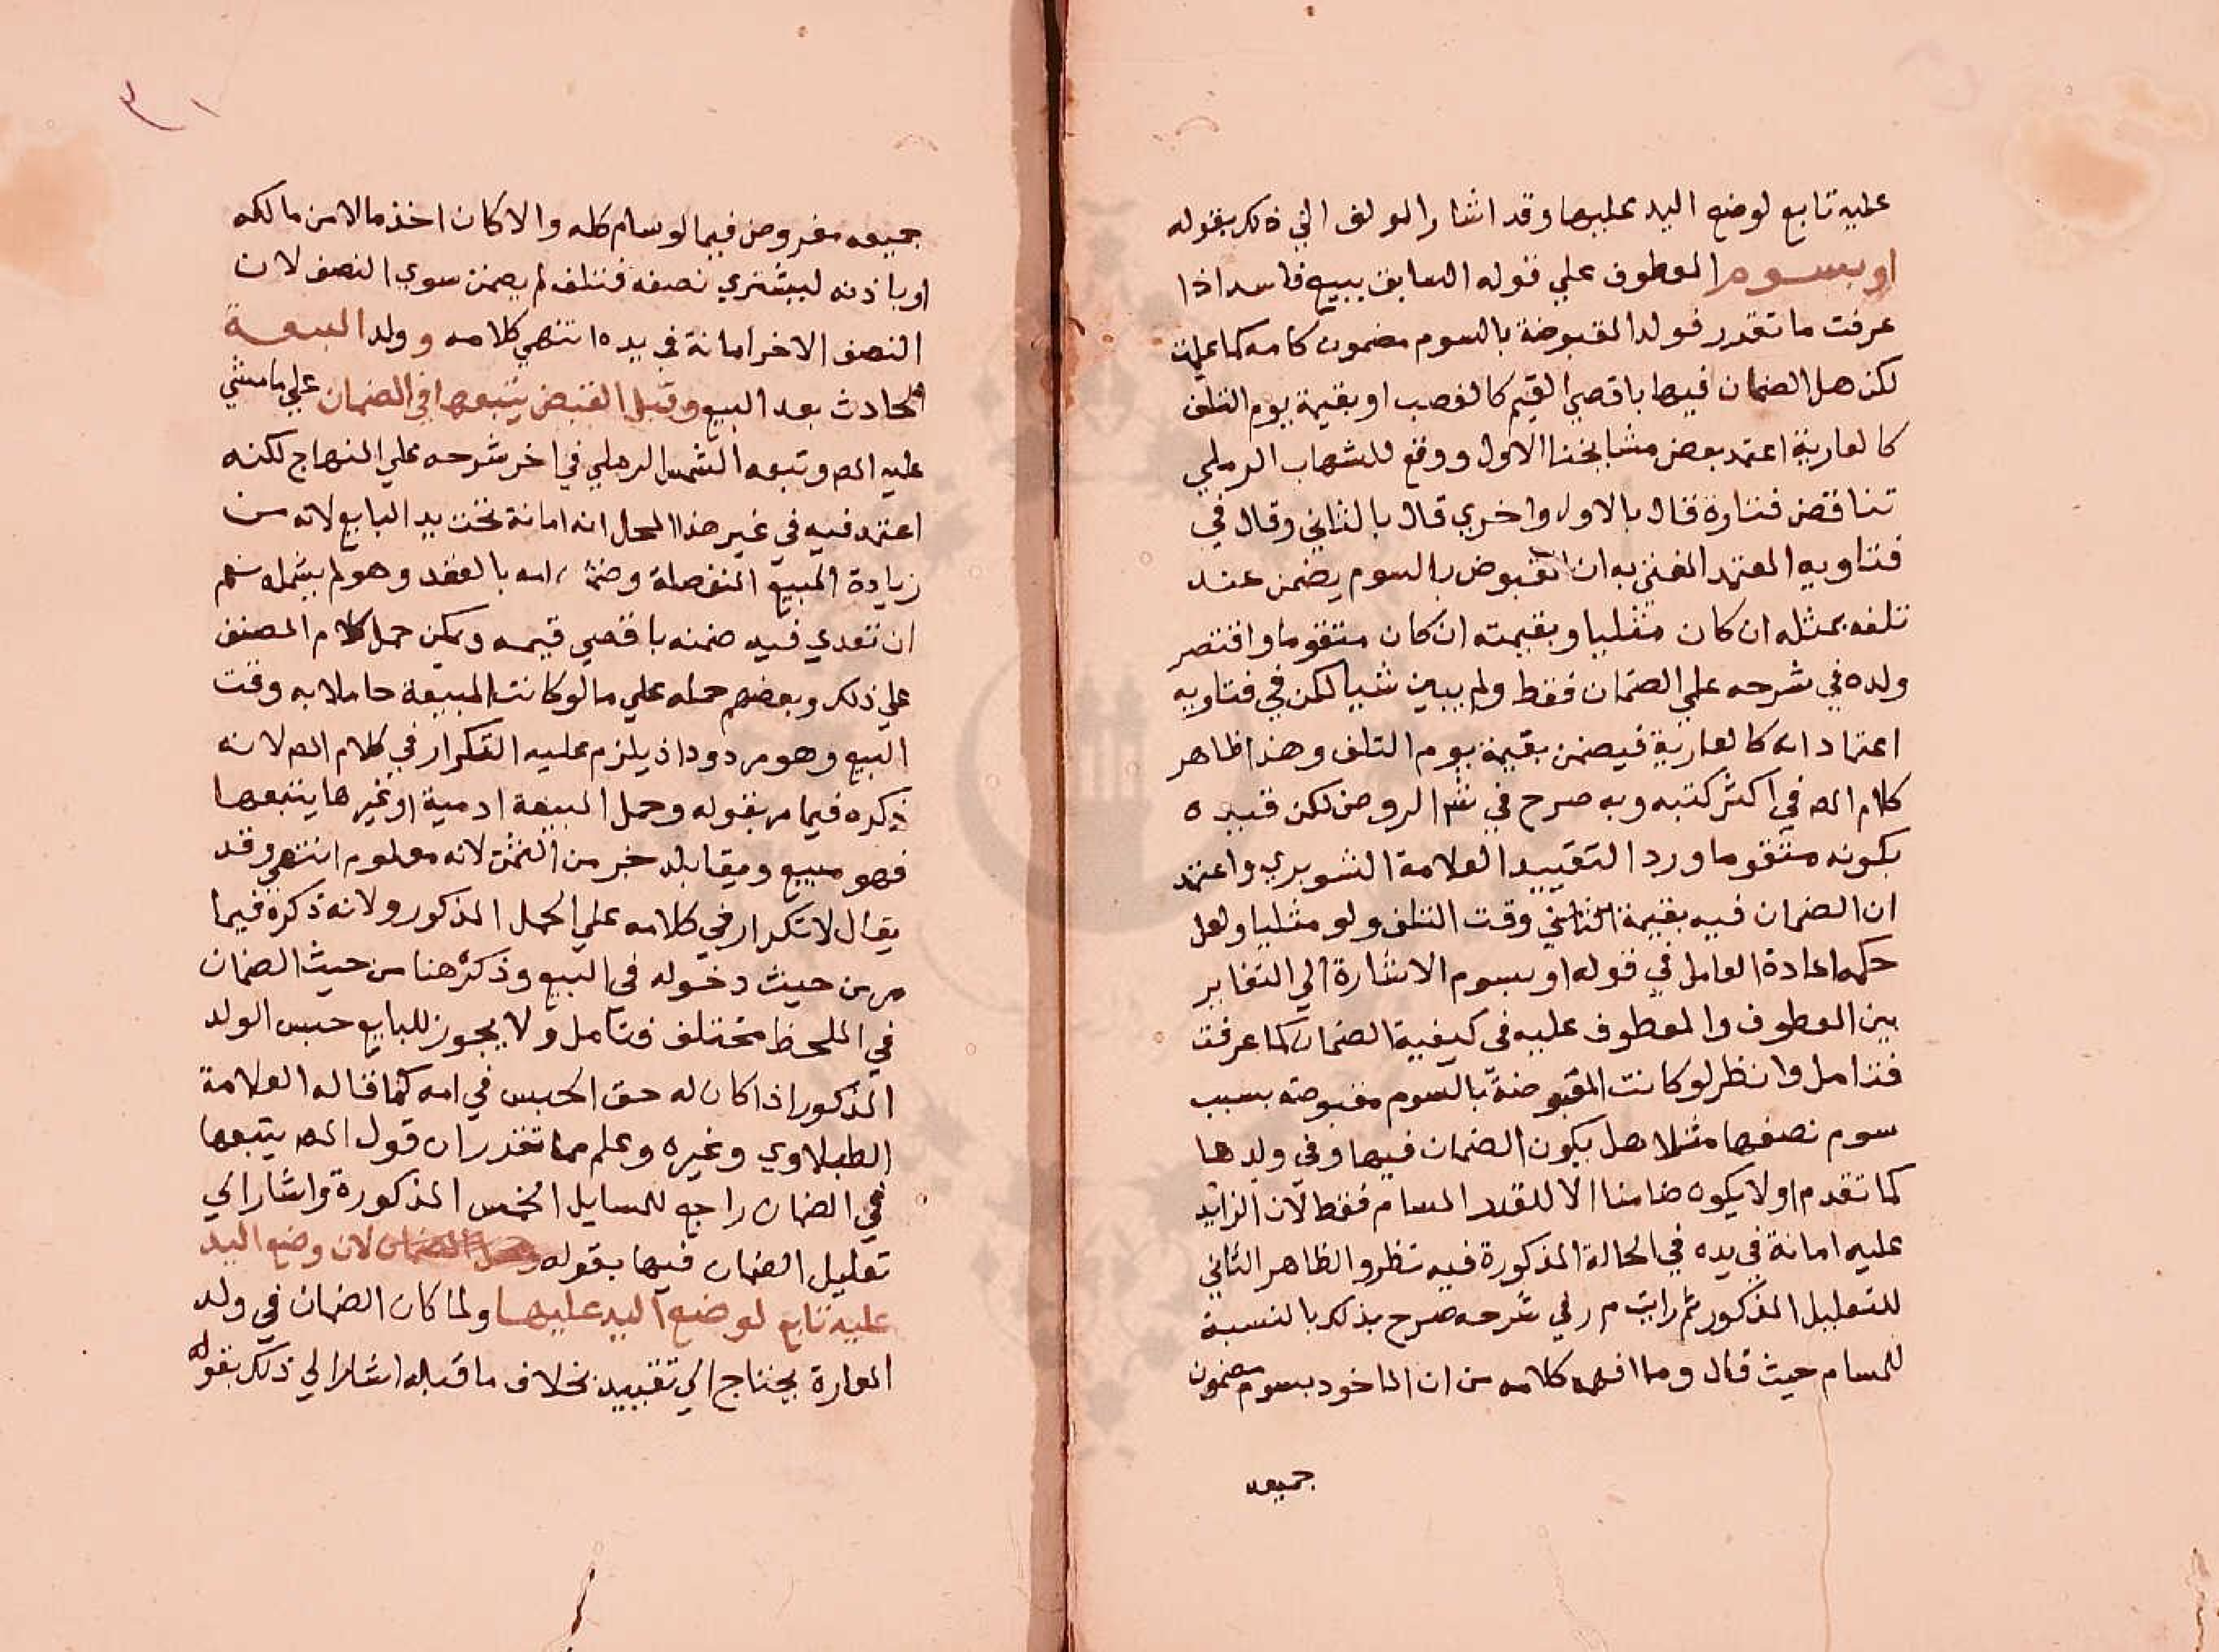 عليه تابع لوضع اليد عليها وقد اشار المولف الي ذلك بقوله
او بسوم المعطوف علي قوله السابق ببيع فاسد اذا
عرفت ما تقرر فولد المقبوضة بالسوم مضمون كامه كما علمت
لكن هل الضمان فيها باقصي القيم كالغصب او بقيمة يوم التلف
كالعارية اعتمد بعض مشايخنا الاول ووقع للشهاب الرملي
تناقض فتارة قال بالاول واخري قال بالثاني وقال في
فتاويه المعتمد المفتي به ان المقبوض بالسوم يضمن عند
تلفه بمثله ان كان مثليا وبقيمته ان كان متقوما واقتصر
ولده في شرحه علي الضمان فقط ولم يبين شيا لكن في فتاويه
اعتماد انه كالعارية فيضمن بقيمة يوم التلف وهذا ظاهر
كلام المص في اكثر كتبه وبه صرح في شرح الروض لكن قيده
بكونه متقوما ورد التقييد العلامة الشوبري واعتمد
ان الضمان فيه بقيمة الثاني وقت التلف ولو مثليا ولعل
حكمة اعادة العامل في قوله او بسوم الاشارة الي التغاير
بين المعطوف والمعطوف عليه في كيفية الضمان كما عرفت
فتامل وانظر لو كانت المقبوضة بالسوم مقبوضة بسبب
سوم نصفها مثلا هل يكون الضمان فيها وفي ولدها
كما تقدم او لا يكون ضامنا الا للقدر المسام فقط لان الزايد
عليه امانة في يده في الحالة المذكورة فيه نظر والظاهر الثاني
للتعليل المذكور ثم رايت م ر في شرحه صرح بذلك بالنسبة
للمسام حيث قال وما افهمه كلامه من ان الماخوذ بسوم مضمون
جميعه
جميعه مفروض فيما لو سام كله والا كان اخذ مالا من مالكه
او باذنه ليشتري نصفه فتلف لم يضمن سوي النصف لان
النصف الاخر امانة في يده انتهي كلامه وولد المبيعة
الحادث بعد البيع وقبل القبض يتبعها في الضمان علي ما مشي
عليه المص وتبعه الشمس الرملي في اخر شرحه علي المنهاج لكنه
اعتمد فيه في غير هذا المحل انه امانة تحت يد البايع لانه من
زيادة المبيع المنفصلة وضمان امه بالعقد وهو لم يشمله نعم
ان تعدي فيه ضمنه باقصي قيمه ويمكن حمل كلام المصنف
علي ذلك وبعضهم حمله علي ما لو كانت المبيعة حاملا به وقت
البيع وهو مردود اذ يلزم عليه التكرار في كلام المص لانه
ذكره فيما مر بقوله وحمل المبيعة ادمية او غيرها يتبعها
فهو مبيع ويقابله جزء من الثمن لانه معلوم انتهي وقد
يقال لا تكرار في كلامه علي الحمل المذكور ولانه ذكره فيما
مر من حيث دخوله في البيع وذكره هنا من حيث الضمان
في الملحظ مختلف فتامل ولا يجوز للبايع حبس الولد
المذكور اذا كان له حق الحبس في امه كما قاله العلامة
الطبلاوي وغيره وعلم مما تقرر ان قول المص يتبعها
في الضمان راجع للمسايل الخمس المذكورة واشار الي
تعليل الضمان فيها بقوله لان وضع اليد
عليه تابع لوضع اليد عليها ولما كان الضمان في ولد
المعارة يحتاج الي تقييد بخلاف ما قبله اشار الي ذلك بقوله